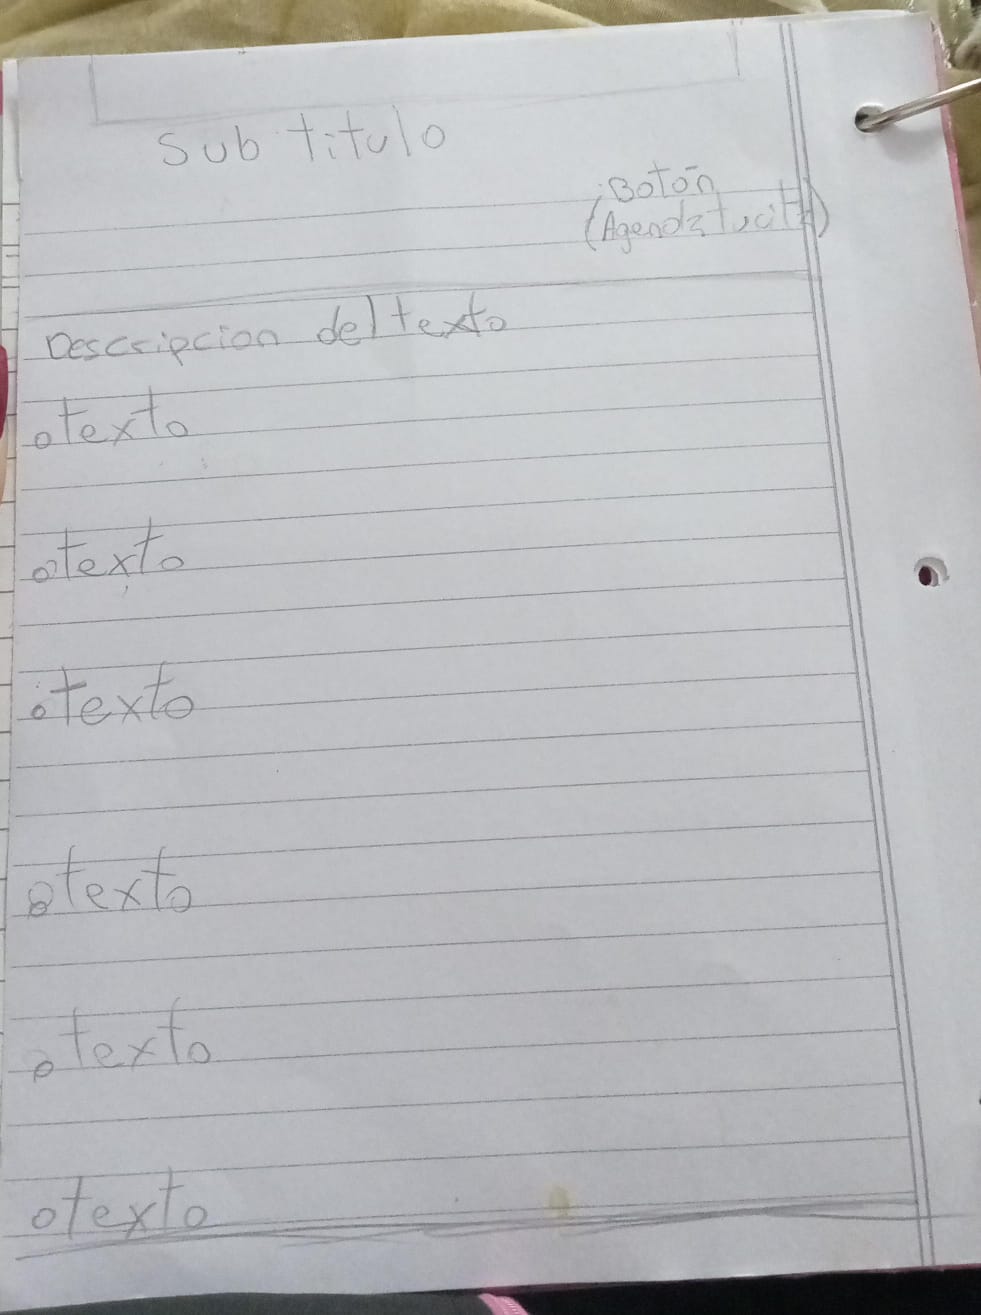 Sub titulo
Botón
(Agenda tu cita)
Descripcion del texto
o texto
o texto
o texto
o texto
o texto
o texto